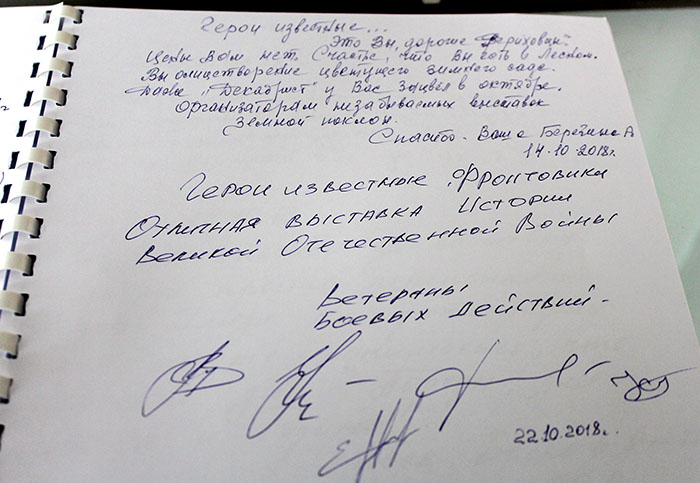 Герои известные...
Это Вы, дорогие
Цены Вам нет. Счастье, что Вы есть в Лесном.
Вы олицетворение цветущего зимнего сада.
Даже "Декабрист" у Вас зацвёл в октябре.
Организаторам незабываемых выставок
Земной поклон.
Спасибо. Ваша Березина А
14.10.2018г.
Герои известные, Фронтовики
Отличная выставка Истории
Великой Отечественной Войны
Ветераны
Боевых Действий.
22.10.2018г.